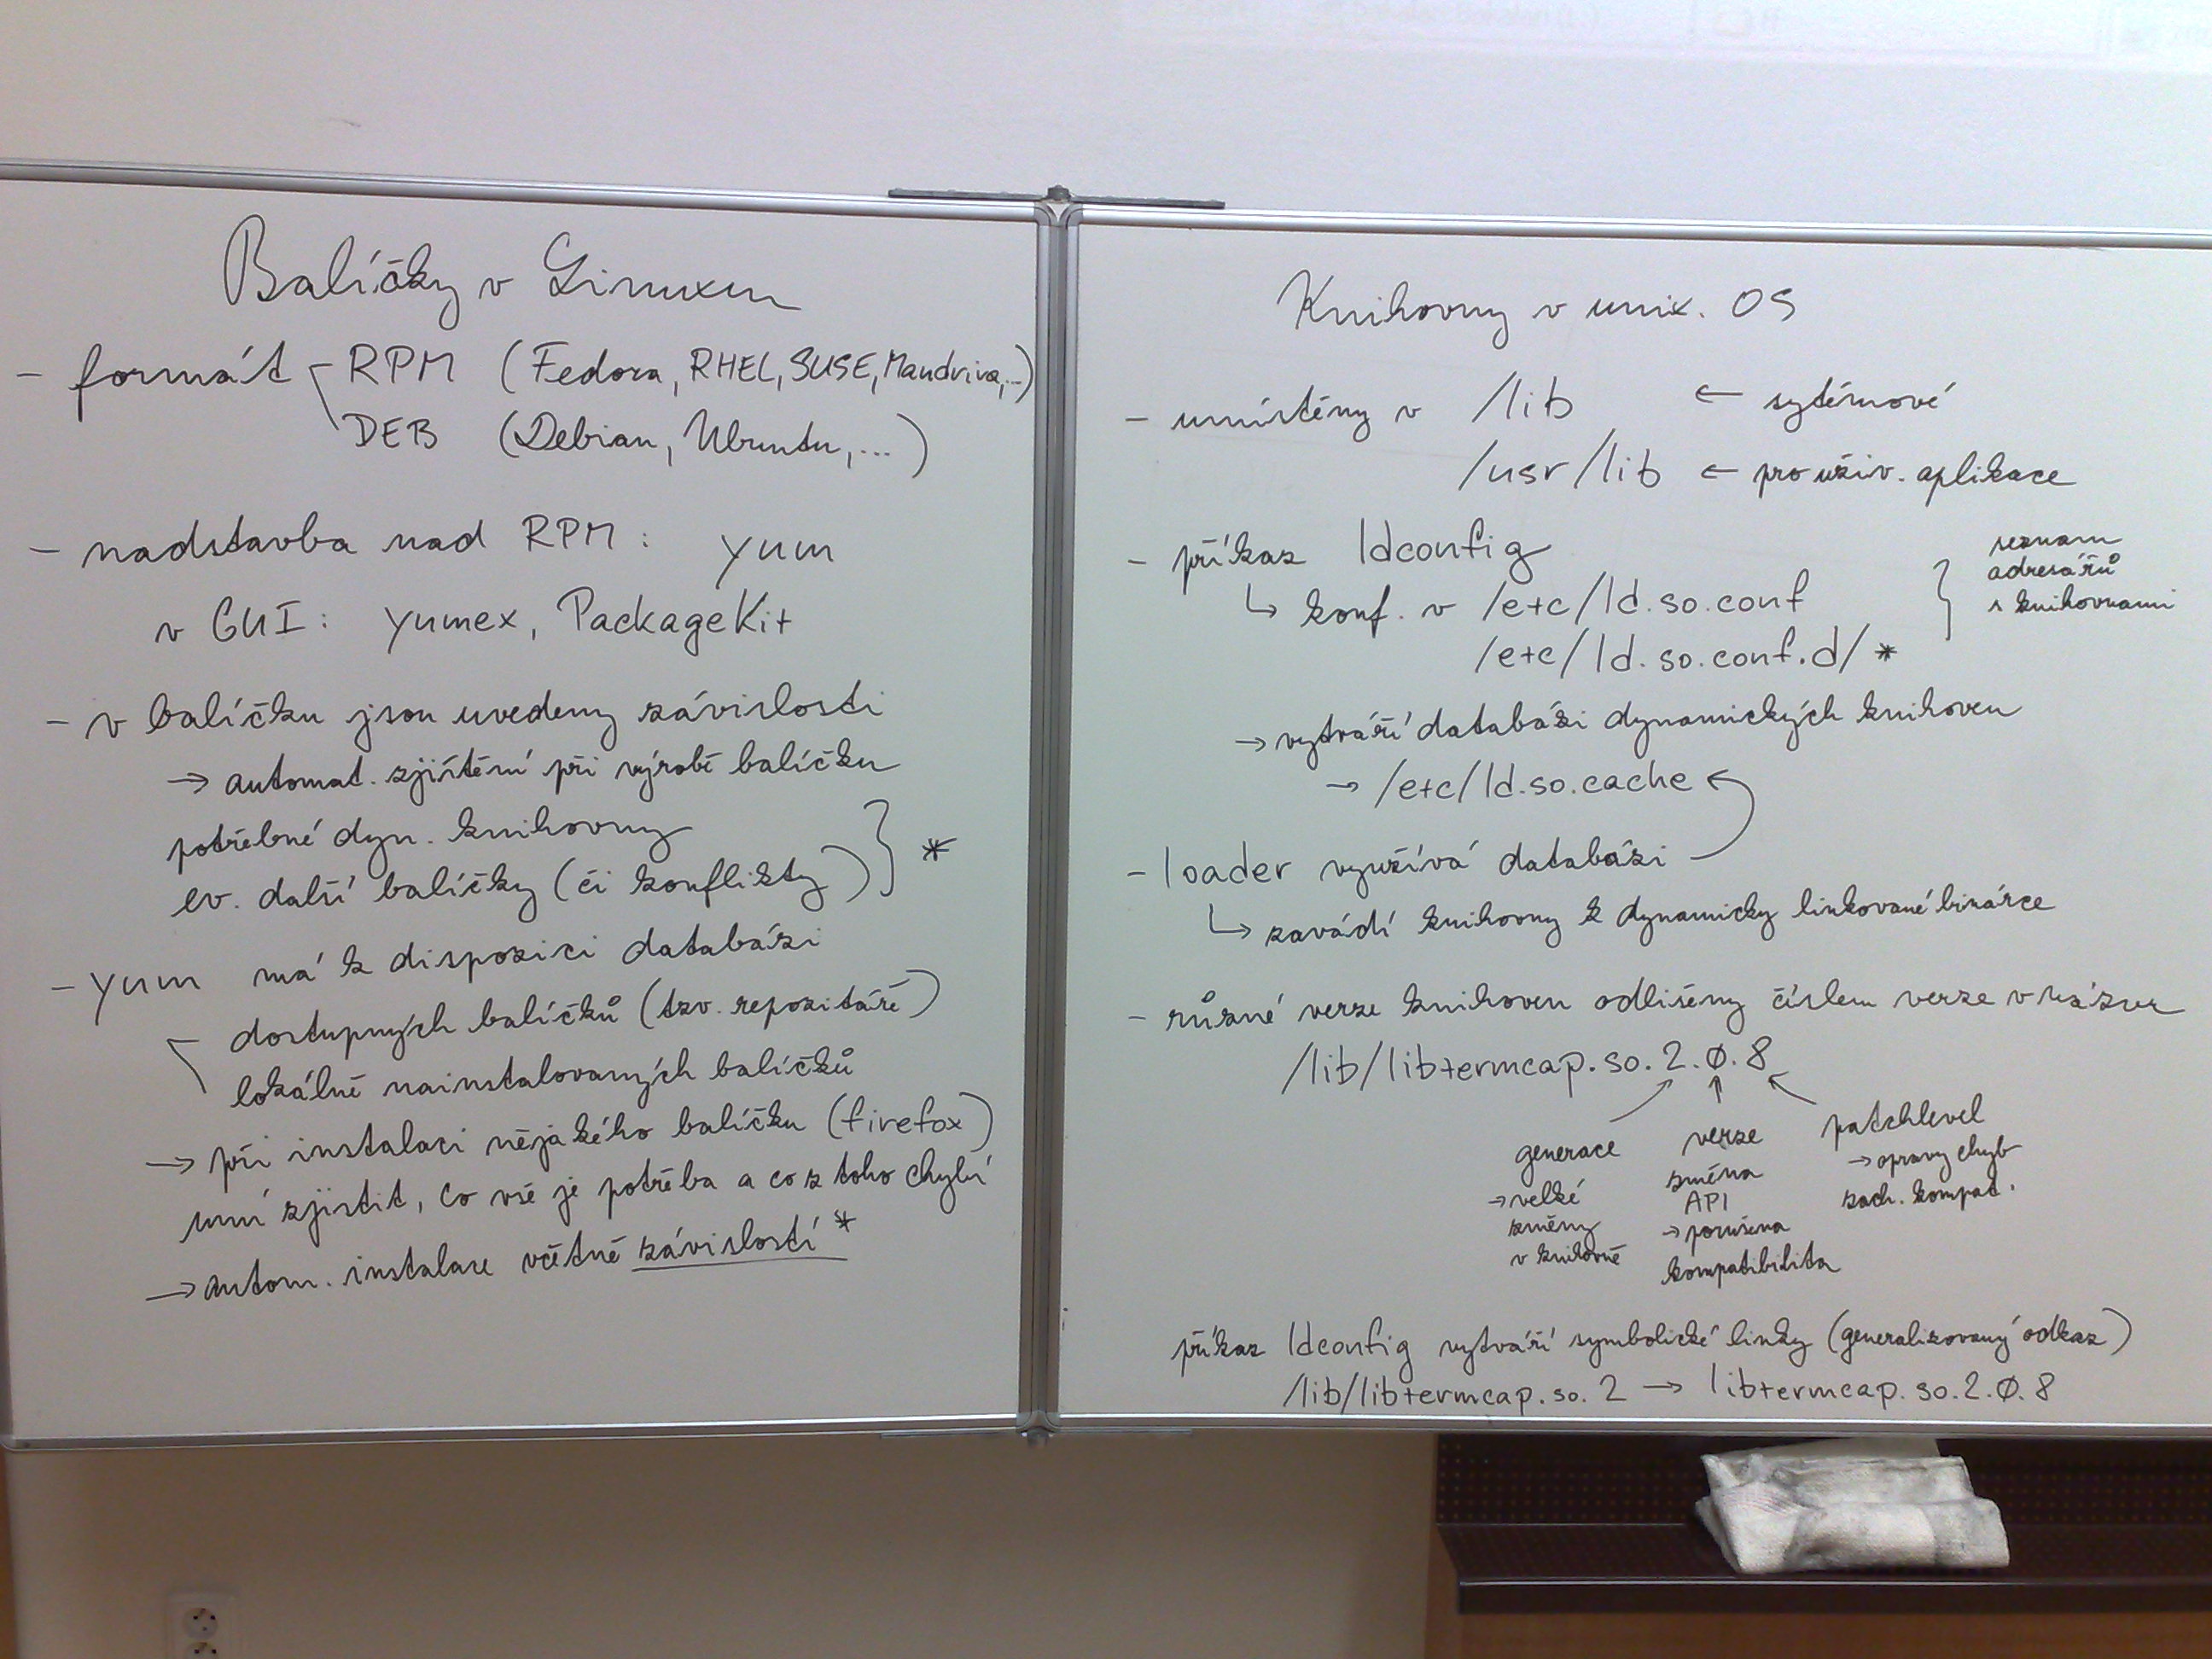 Balíčky v Linuxu
- formát - RPM (Fedora, RHEL, SUSE, Mandriva,...)
DEB (Debian, Ubuntu,...)
- nadstavba nad RPM: yum
v GUI: yumex, PackageKit
- v balíčku jsou uvedeny závislosti
→ automat. zjištění při výrobě balíčku
potřebné dyn. knihovny
ev. další balíčky (či konflikty) } *
- yum má k dispozici databázi
dostupných balíčků (tzv. repozitáře)
lokálně nainstalovaných balíčků
→ při instalaci nějakého balíčku (firefox)
umí zjistit, co vše je potřeba a co z toho chybí
→ autom. instalace včetně závislostí*
Knihovny v unix. OS
- umístěny v /lib ← sytémové
/usr/lib ← pro uživ. aplikace
- příkaz ldconfig
↳ konf. v /etc/ld.so.conf
/etc/ld.so.conf.d/*
} seznam
adresářů
s knihovnami
→ vytváří databázi dynamických knihoven
→ /etc/ld.so.cache
- loader využívá databázi
↳ zavádí knihovny k dynamicky linkované binárce
- různé verze knihoven odlišeny číslem verze v názvu
/lib/libtermcap.so.2.0.8
generace
→ velké
změny
v knihovně
verze
změna
API
→ porušena
kompatibilita
patchlevel
→ opravy chyb
zach. kompat.
příkaz ldconfig vytváří symbolické linky (generalizovaný odkaz)
/lib/libtermcap.so.2 → libtermcap.so.2.0.8